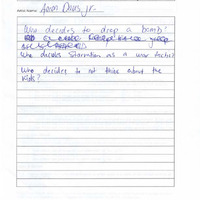 Artist Name: Aaron Davis Jr.
Who decides to drop a bomb?
Who decides starvation as a war tactic?
Who decides to not think about the
kids?